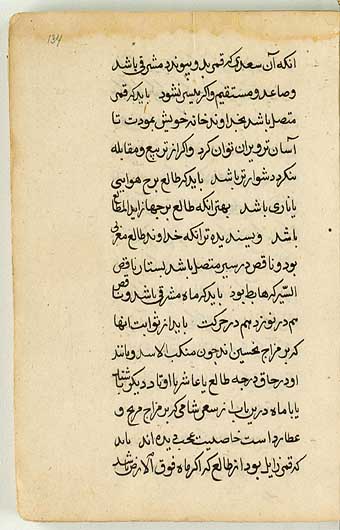 134
انکه آن سعدی که قمر بدو پیوندد مشرقی باشد
وصاعد ومستقیم واکر میسر نشود باید که قمر
متصل باشد بخداوند خانه خویش بمودت تا
آسان تر ویران توان کرد واکر از تربیع ومقابله
بنکرد دشوار تر باشد باید که طالع برج هوایی
یا ناری باشد بهتر انکه طالع برجها زاید المطالع
باشد وپسندیده تر انکه خداوند طالع مغربی
بود وناقص در سیر متصل باشد بستاره ناقص
السیر که هابط بود باید که ماه مشرقی باشد وناقص
هم در نور و هم در حرکت باید از ثوابت انها
که بر مزاج نحسین اند چون منکب الاسد ومانند
او در حاق درجه طالع یا عاشر یا اوتاد دیکر باشند
یا با ماه درین باب از سعی شامی که بر مزاج مریخ و
عطاردست خاصیت عجب دیده اند باید
که قمر زایل بود از طالع که اکر ماه فوق الارض باشد